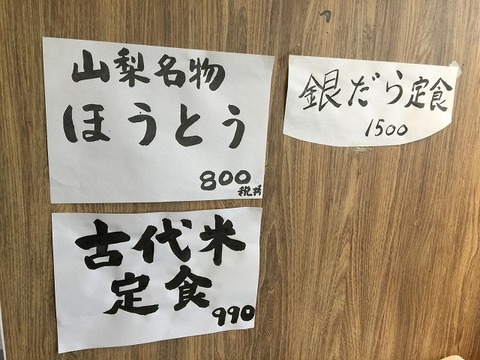 山梨名物
ほうとう
800
税抜
銀だら定食
1500
古代米
定食
990